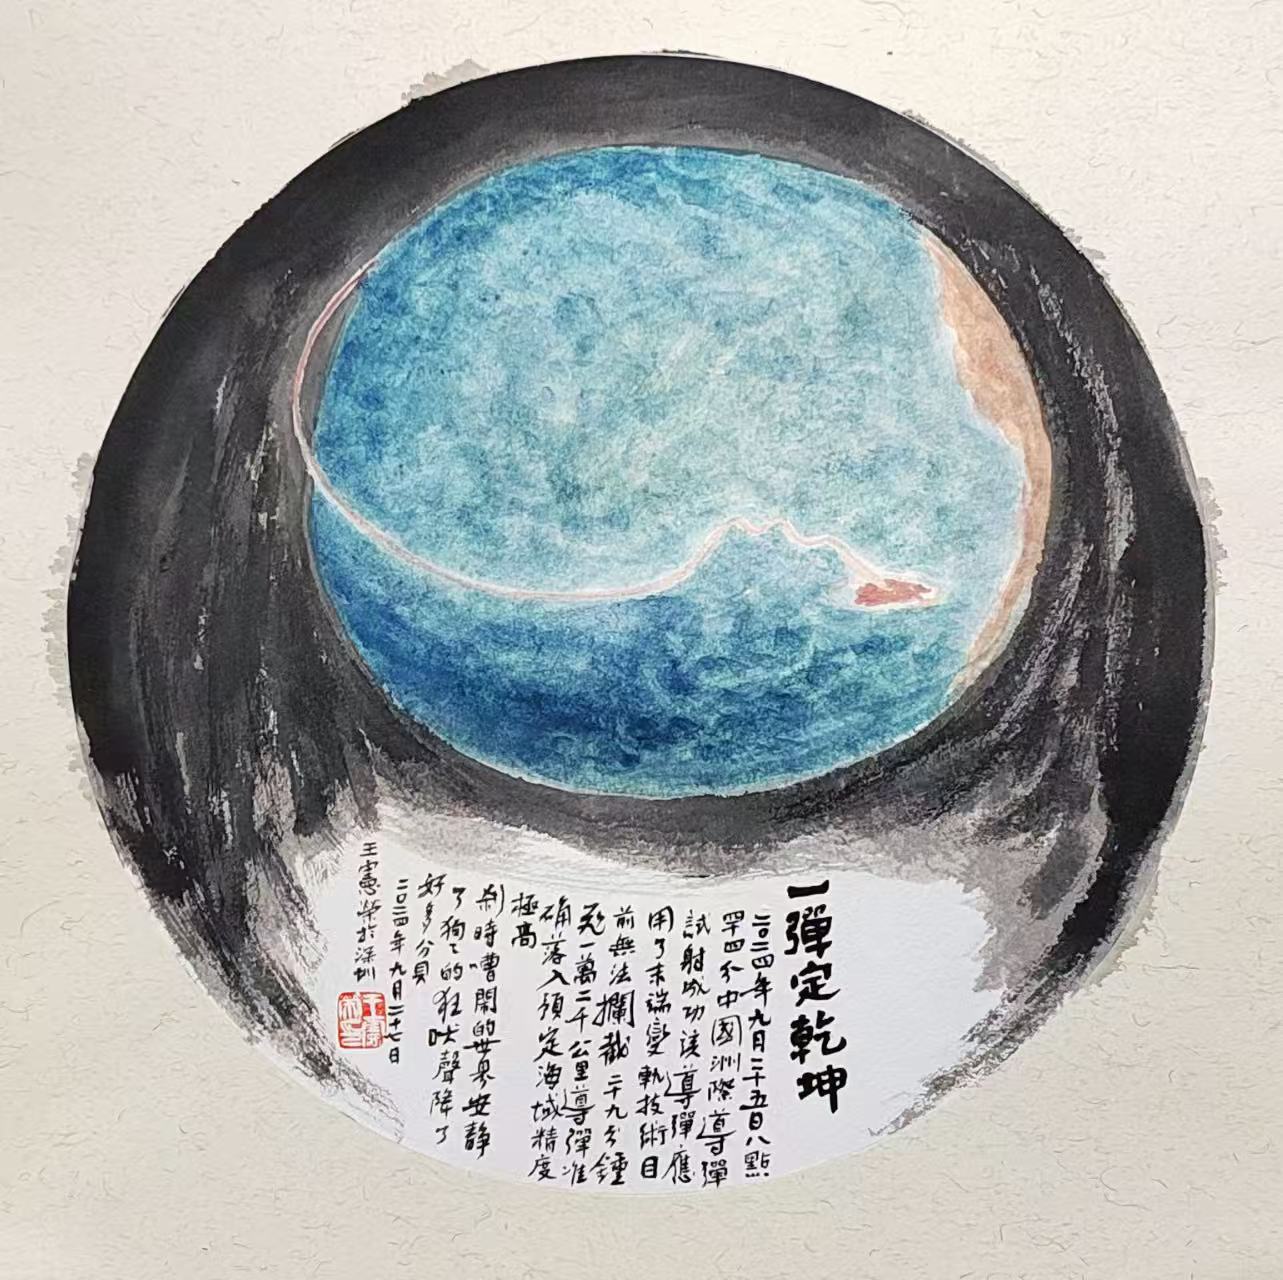 一彈定乾坤
二〇二四年九月二十五日八點
四十四分中國洲際導彈
試射成功该導彈應
用了末端變軌技術目
前無法攔截二十九分鐘
飛一萬二千公里導彈准
确落入預定海域精度
極高
刹時嘈鬧的世界安靜
了狗々的狂吠聲降了
好多分貝
二〇二四年九月二十七日
王憲榮於深圳